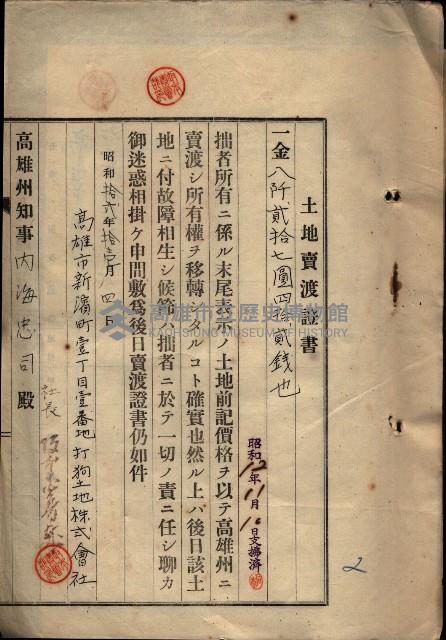 土地賣渡證書
一金八阡貳拾七圓四拾貳錢也
昭和12年11月10日支拂済
拙者所有ニ係ル末尾表示ノ土地前記價格ヲ以テ高雄州ニ
賣渡シ所有權ヲ移轉シタルコト確實也然ル上ハ後日該土
地ニ付故障相生シ候節ハ拙者ニ於テ一切ノ責ニ任シ聊カ
御迷惑相掛ケ申間敷為後日賣渡證書仍如件
昭和拾貳年拾壹月四日
高雄市新濱町壹丁目壹番地打狗土地株式會社
社長
高雄州知事內海忠司殿
高雄市立歷史博物館
KAOHSIUNG MUSEUM OF HISTORY
2